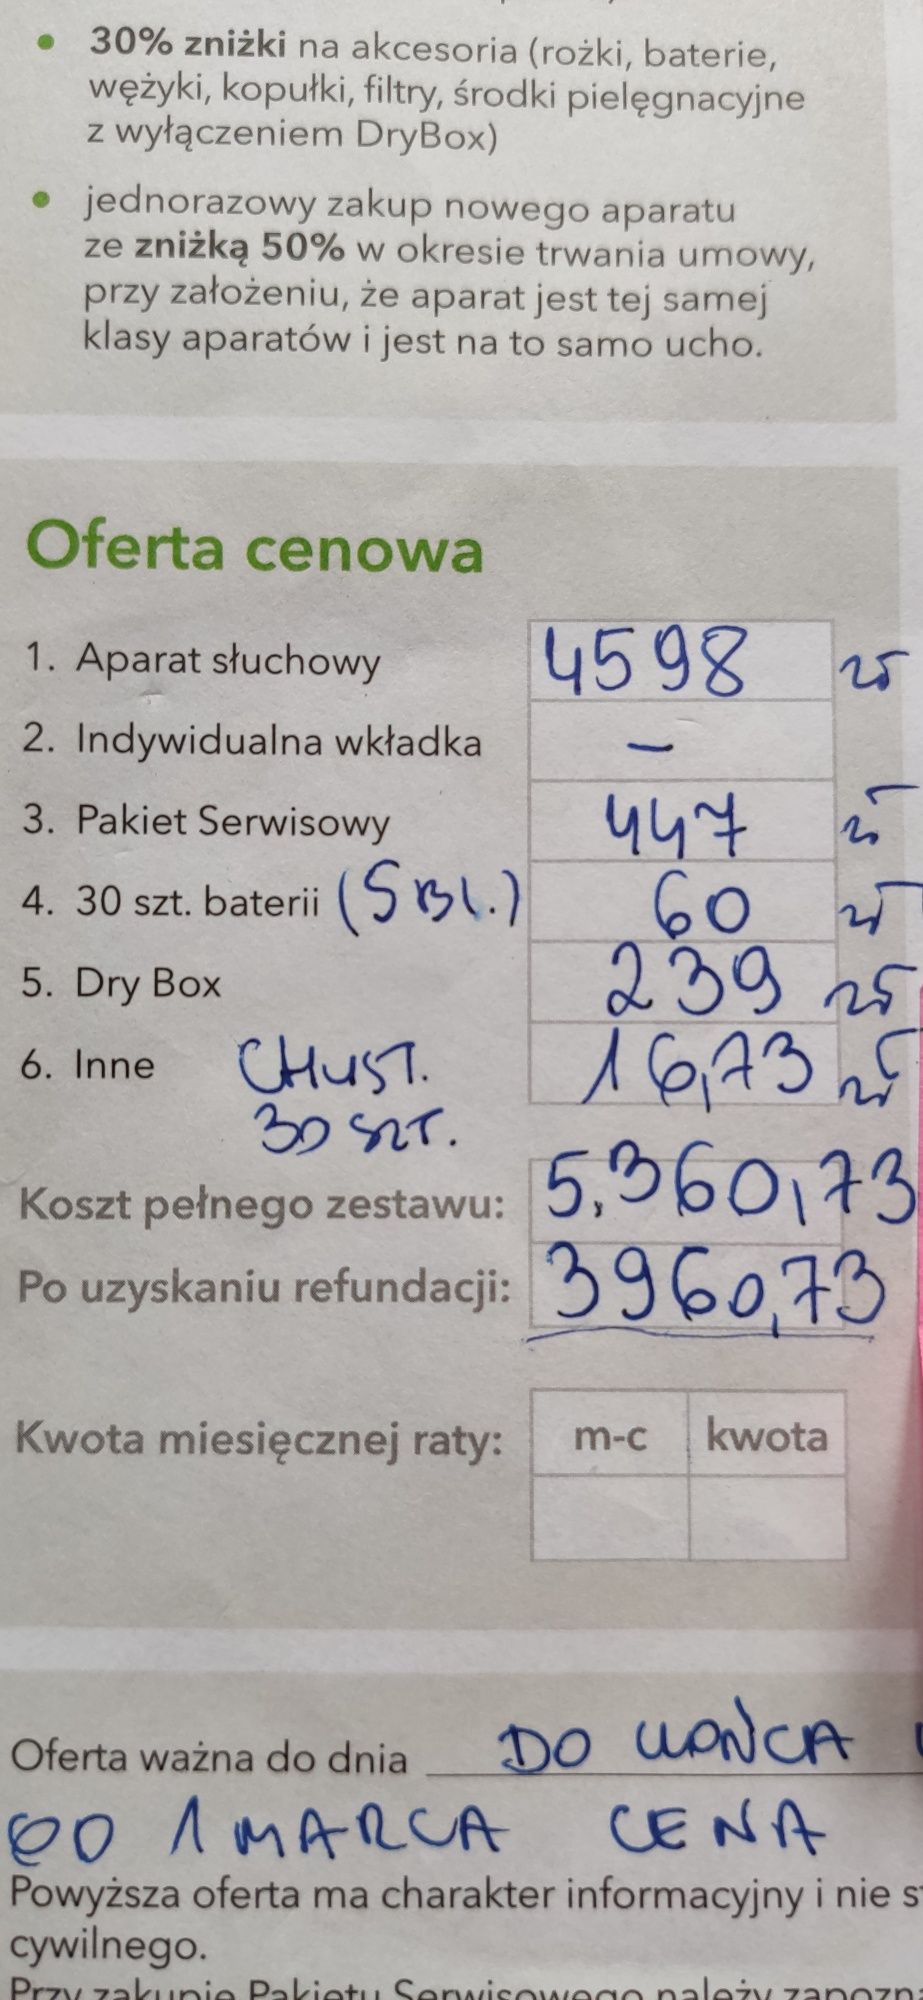 • 30% zniżki na akcesoria (rożki, baterie,
wężyki, kopułki, filtry, środki pielęgnacyjne
z wyłączeniem DryBox)
• jednorazowy zakup nowego aparatu
ze zniżką 50% w okresie trwania umowy,
przy założeniu, że aparat jest tej samej
klasy aparatów i jest na to samo ucho.
Oferta cenowa
1. Aparat słuchowy 4598 zł
2. Indywidualna wkładka –
3. Pakiet Serwisowy 447 zł
4. 30 szt. baterii (5 BL.) 60 zł
5. Dry Box 239 zł
6. Inne CHUST. 16,73 zł
30 SZT.
Koszt pełnego zestawu: 5.360,73
Po uzyskaniu refundacji: 3960,73
Kwota miesięcznej raty: m-c kwota
Oferta ważna do dnia DO KOŃCA
OD 1 MARCA CENA
Powyższa oferta ma charakter informacyjny i nie
cywilnego.
Przy zakupie Pakietu Serwisowego należy